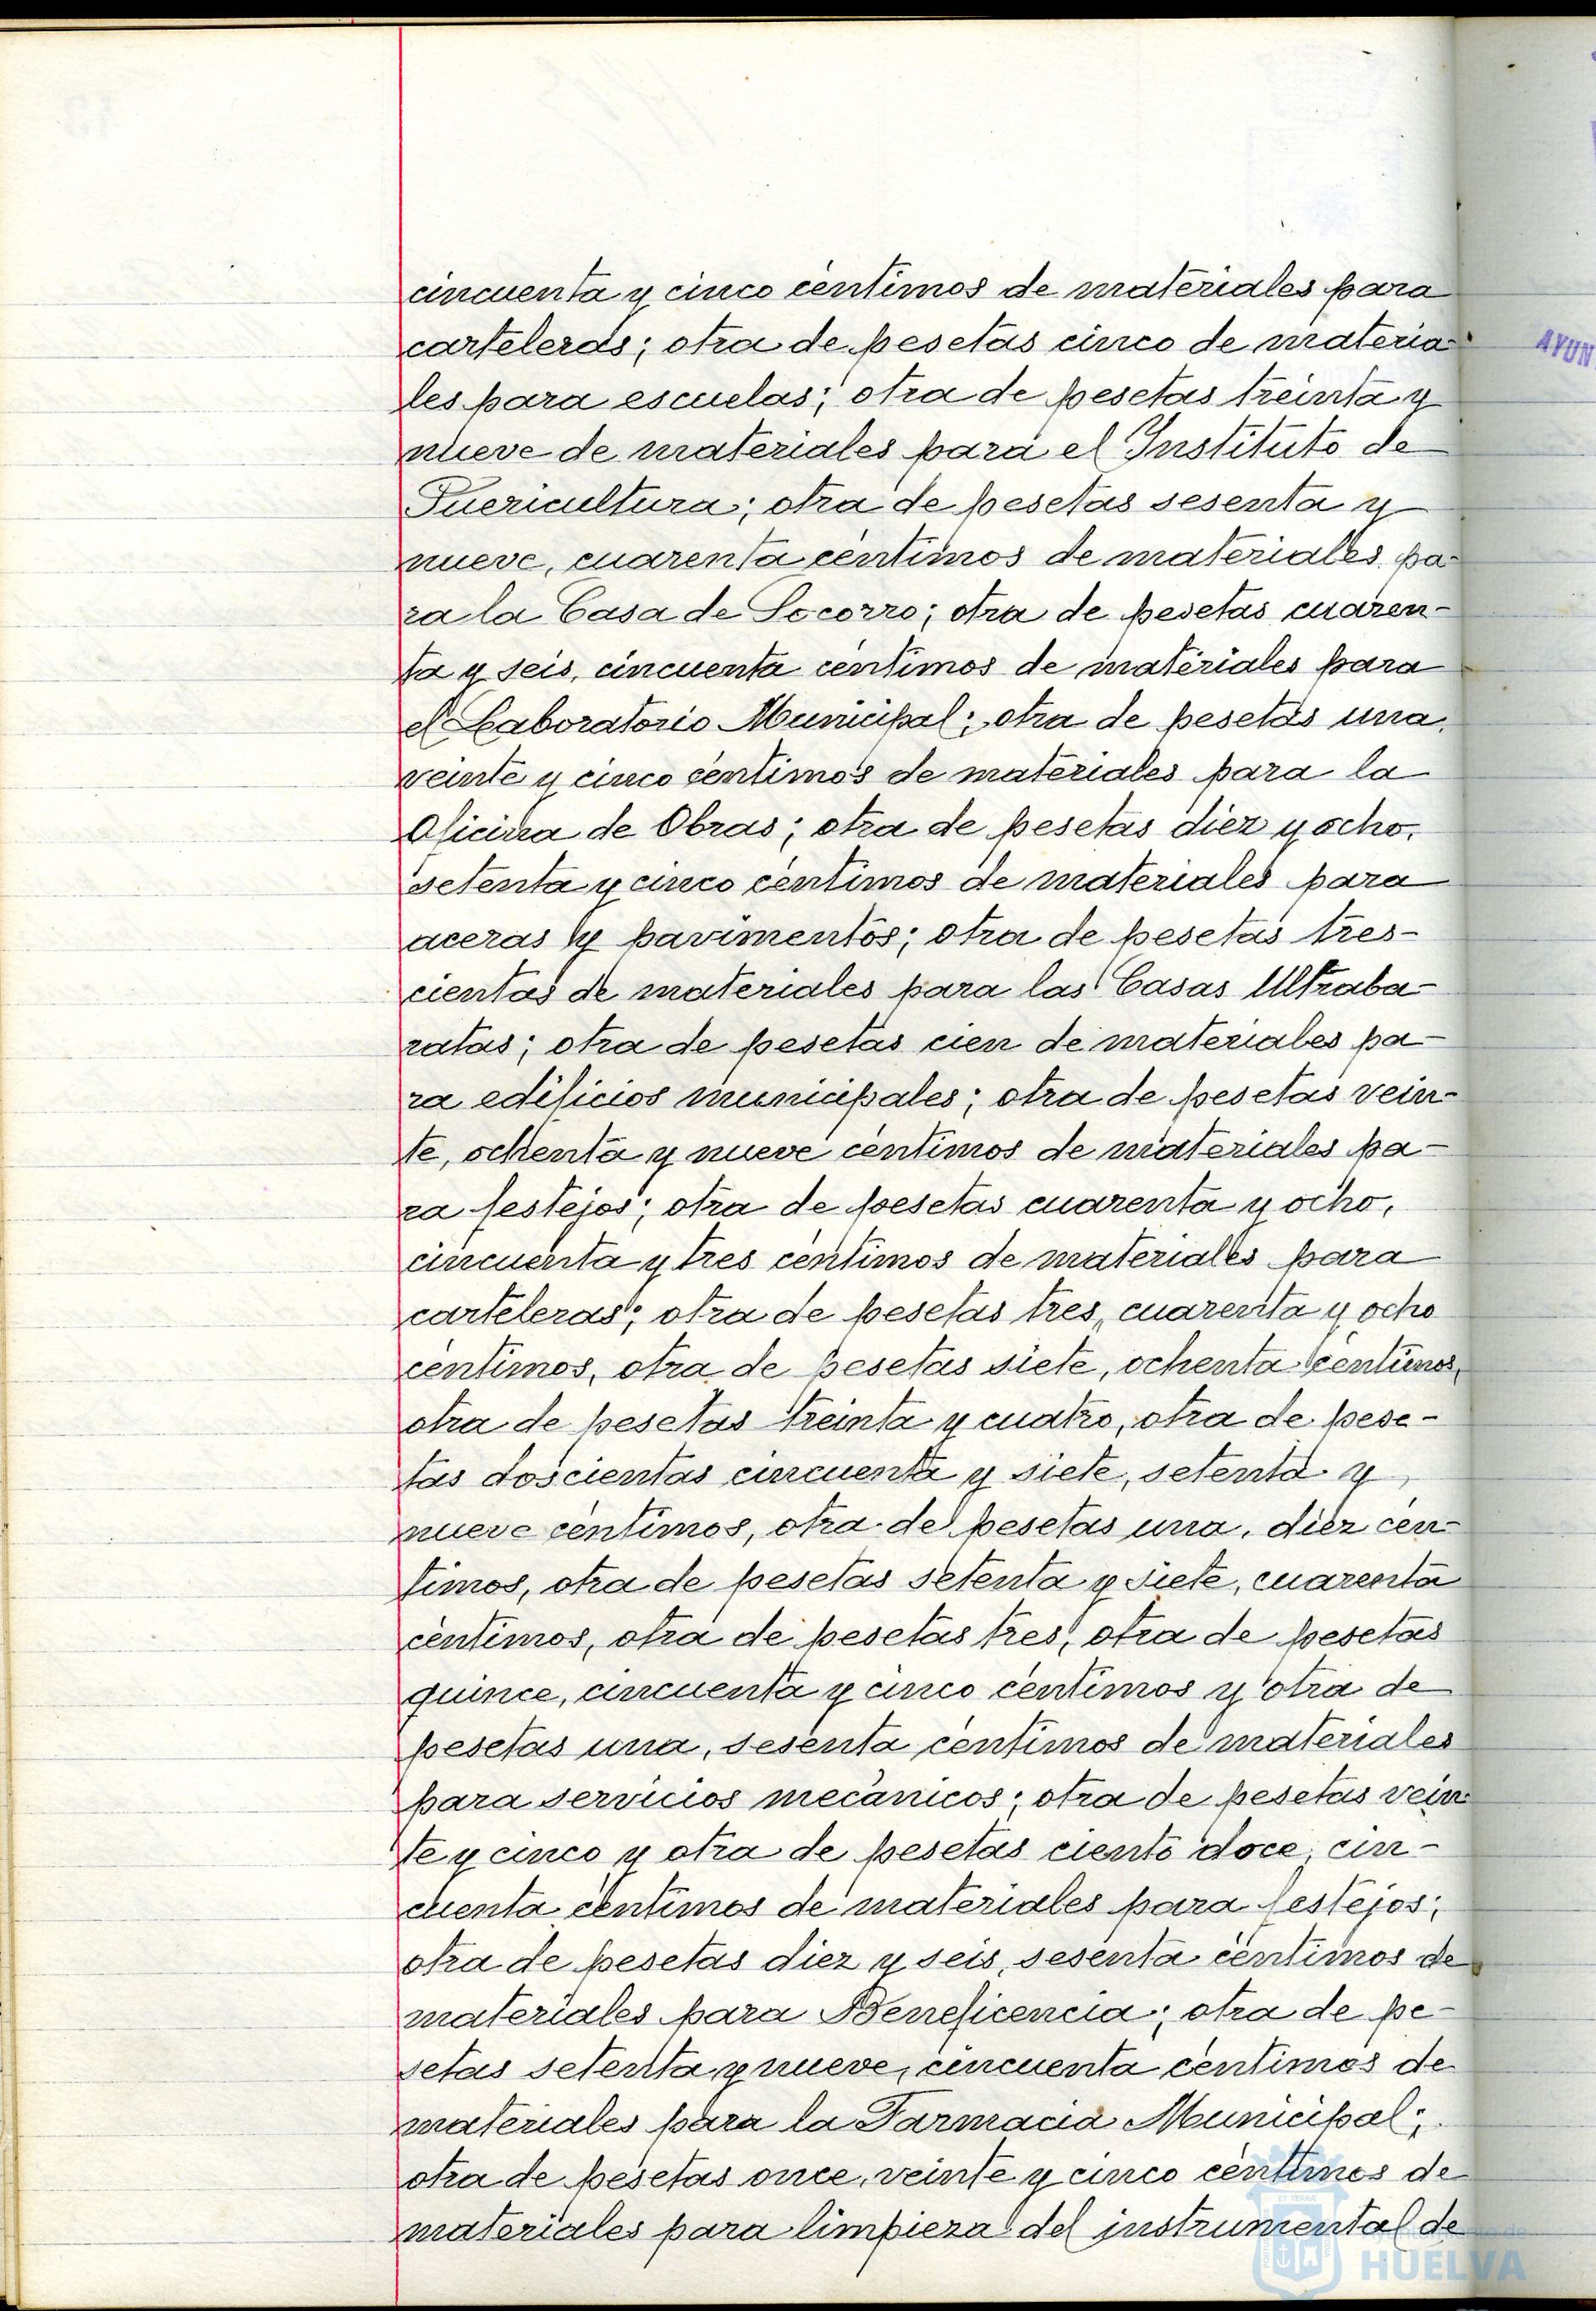 cincuenta y cinco céntimos de materiales para
carteleras; otra de pesetas cinco de materia-
les para escuelas; otra de pesetas treinta y
nueve de materiales para el Instituto de
Puericultura; otra de pesetas sesenta y
nueve, cuarenta céntimos de materiales pa-
ra la Casa de Socorro; otra de pesetas cuaren-
ta y seis, cincuenta céntimos de materiales para
el Laboratorio Municipal; otra de pesetas una,
veinte y cinco céntimos de materiales para la
Oficina de Obras; otra de pesetas diez y ocho,
setenta y cinco céntimos de materiales para
aceras y pavimentos; otra de pesetas tres-
cientas de materiales para las Casas Ultraba-
ratas; otra de pesetas cien de materiales pa-
ra edificios municipales; otra de pesetas vein-
te, ochenta y nueve céntimos de materiales pa-
ra festejos; otra de pesetas cuarenta y ocho,
cincuenta y tres céntimos de materiales para
carteleras; otra de pesetas tres, cuarenta y ocho
céntimos, otra de pesetas siete, ochenta céntimos,
otra de pesetas treinta y cuatro, otra de pese-
tas doscientas cincuenta y siete, setenta y
nueve céntimos, otra de pesetas una, diez cén-
timos, otra de pesetas setenta y siete, cuarenta
céntimos, otra de pesetas tres, otra de pesetas
quince, cincuenta y cinco céntimos y otra de
pesetas una, sesenta céntimos de materiales
para servicios mecánicos; otra de pesetas vein-
te y cinco y otra de pesetas ciento doce, cin-
cuenta céntimos de materiales para festejos;
otra de pesetas diez y seis, sesenta céntimos de
materiales para Beneficencia; otra de pe-
setas setenta y nueve, cincuenta céntimos de
materiales para la Farmacia Municipal;
otra de pesetas once, veinte y cinco céntimos de
materiales para limpieza del instrumental de
AYUN
HUELVA